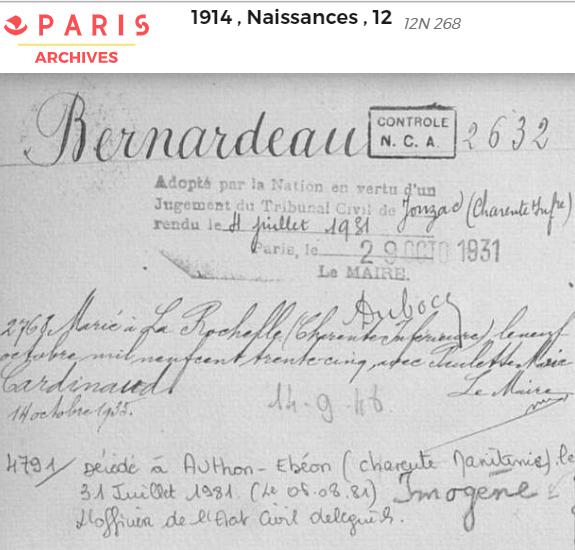 PARIS
ARCHIVES
1914 , Naissances , 12 12N 268
Bernardeau
CONTROLE
N. C. A.
2632
Adopté par la Nation en vertu d'un
Jugement du Tribunal Civil de Jonzac (Charente Infre)
rendu le juillet 1931
Paris, le 29 OCTO 1931
Le MAIRE.
Marié à La Rochelle (Charente Inférieure) le neuf
octobre mil neuf cent trente cinq, avec Paulette Marie
Cardinaud.
Le Maire
14 octobre 1935.
14-9-46
4791/ Décédé à Authon-Ebéon (charente Maritime) le
31 Juillet 1981. (Le 06.08.81) Imogène
L'officier de l'Etat Civil délégué.